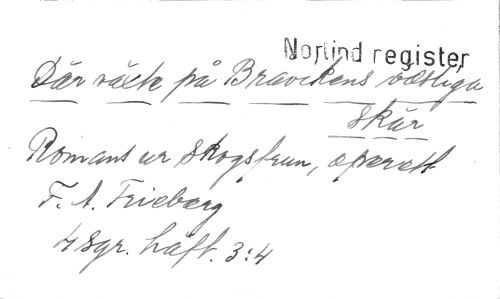 Norlind register
Där växte på Bravikens västliga
skär
Romans ur Skogsfrun, operett
F. A. Frieberg
4 Sgr. häft. 3:4